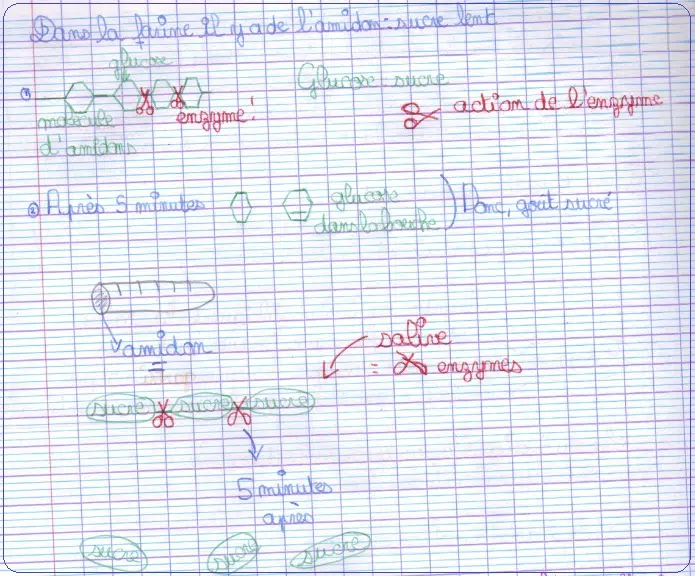 Dans la farine il y a de l'amidon: sucre lent
glucose
Glucose sucre
①
molécule d'amidons
enzyme!
action de l'enzyme
② Après 5 minutes
glucose dans la bouche
Donc, goût sucré
amidon
=
salive
= enzymes
sucre sucre sucre
5 minutes
après
sucre sucre sucre